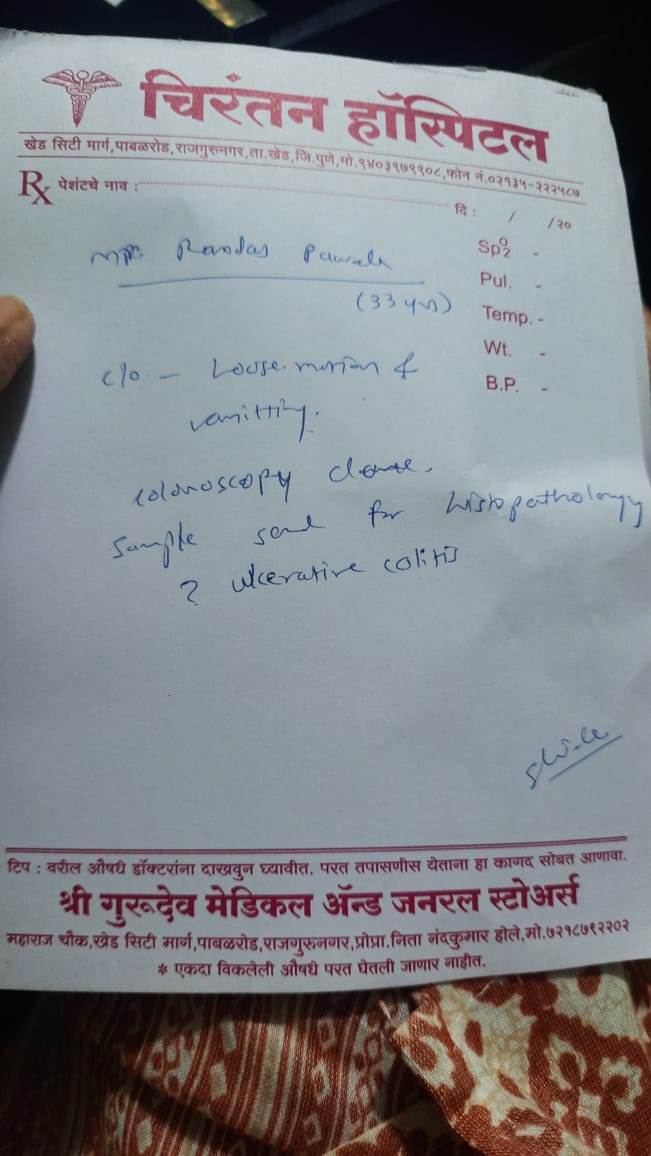 चिरंतन हॉस्पिटल
खेड सिटी मार्ग,पाबळरोड,राजगुरुनगर,ता.खेड,जि.पुणे,मो.९४०३९७९९०८,फोन नं.०२१३५-२२२५८७
Rx पेशंटचे नाव :
दि : / /२०
SpO2 -
Pul. -
Temp. -
Wt. -
B.P. -
(33 yrs)
c/o - Loose motion &
vomitting.
colonoscopy done.
sample send for histopathology
? ulcerative colitis
टिप : वरील औषधे डॉक्टरांना दाखवुन घ्यावीत. परत तपासणीस येताना हा कागद सोबत आणावा.
श्री गुरूदेव मेडिकल ॲन्ड जनरल स्टोअर्स
महाराज चौक,खेड सिटी मार्ग,पाबळरोड,राजगुरुनगर,प्रोप्रा.निता नंदकुमार होले,मो.७२१८७१२२०२
* एकदा विकलेली औषधे परत घेतली जाणार नाहीत.